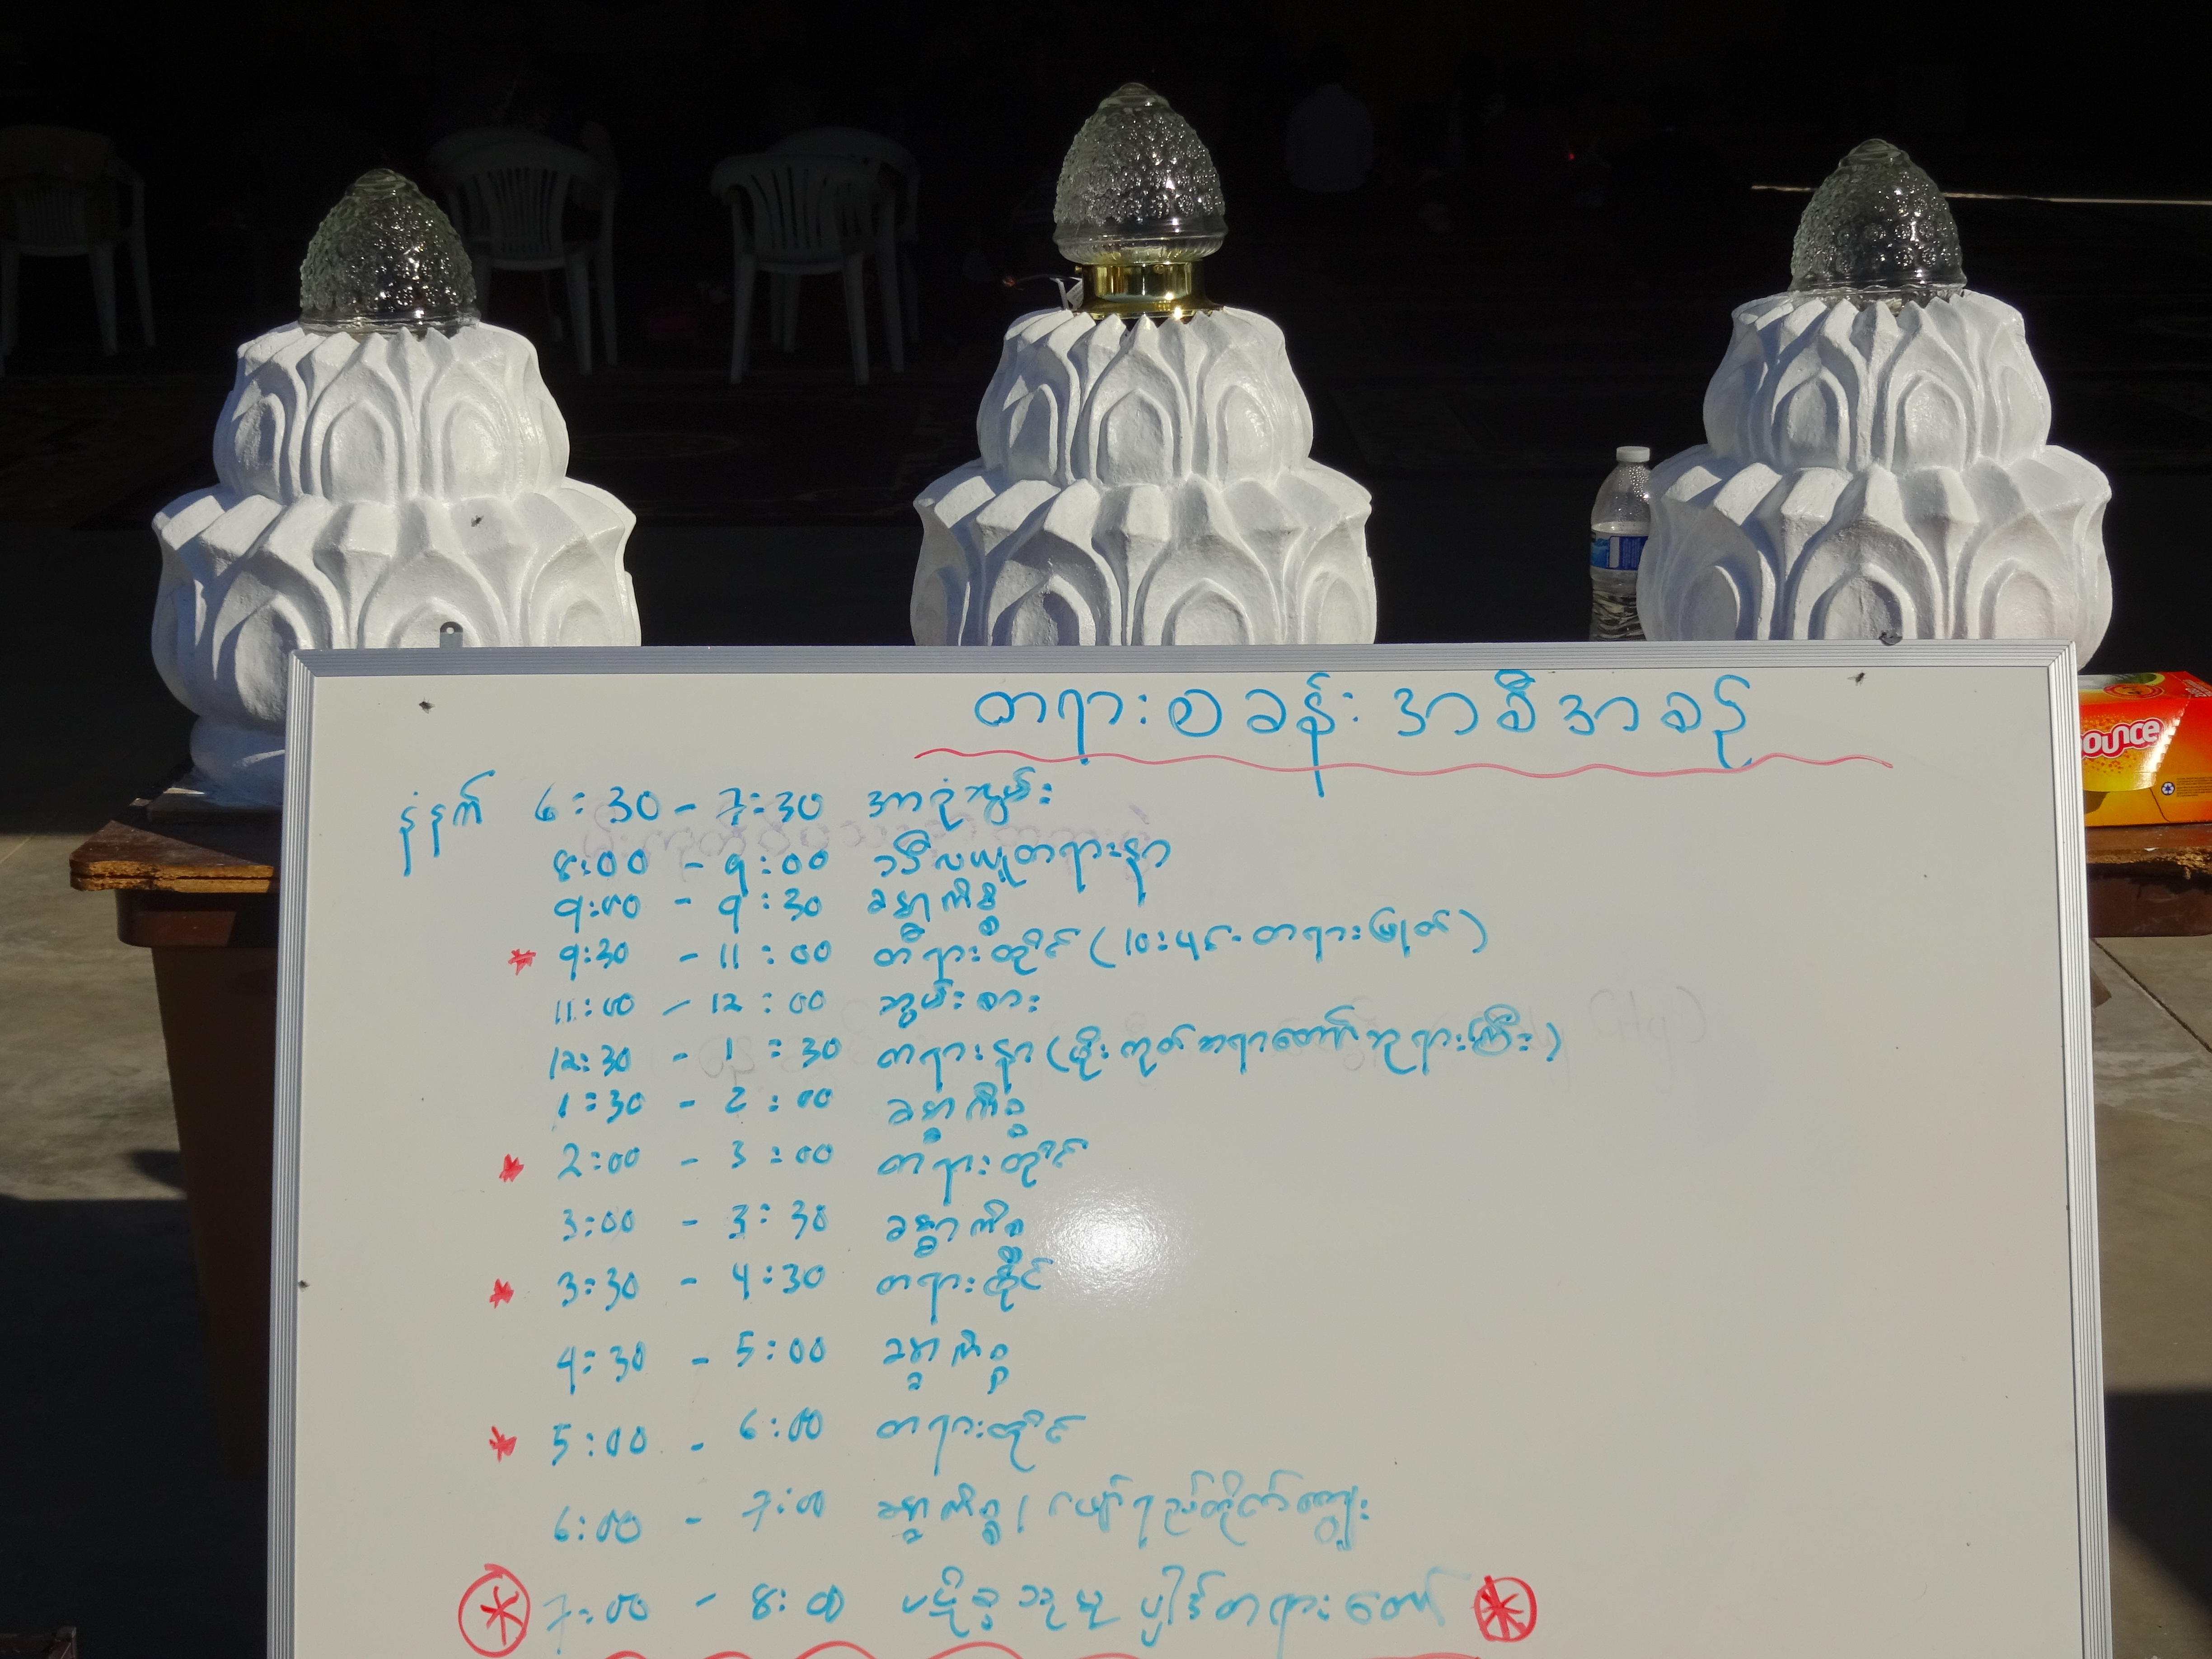 တရားစခန်း အစီအစဉ်
နံနက် 6:30 - 7:30 အာရုံဆွမ်း
8:00 - 9:00 သီလယူတရားနာ
9:00 - 9:30 ခန္ဓာကိစ္စ
* 9:30 - 11:00 တရားထိုင် (10:45 - တရားဖြုတ်)
11:00 - 12:00 ဆွမ်းစား
12:30 - 1:30 တရားနာ (မိုးကုတ်ဆရာတော်ဘုရားကြီး)
1:30 - 2:00 ခန္ဓာကိစ္စ
* 2:00 - 3:00 တရားထိုင်
3:00 - 3:30 ခန္ဓာကိစ္စ
* 3:30 - 4:30 တရားထိုင်
4:30 - 5:00 ခန္ဓာကိစ္စ
* 5:00 - 6:00 တရားထိုင်
6:00 - 7:00 ခန္ဓာကိစ္စ / ဖျော်ရည်တိုက်ကျွေး
* 7:00 - 8:00 ပဋိစ္စသမုပ္ပါဒ်တရားတော် *
ounce